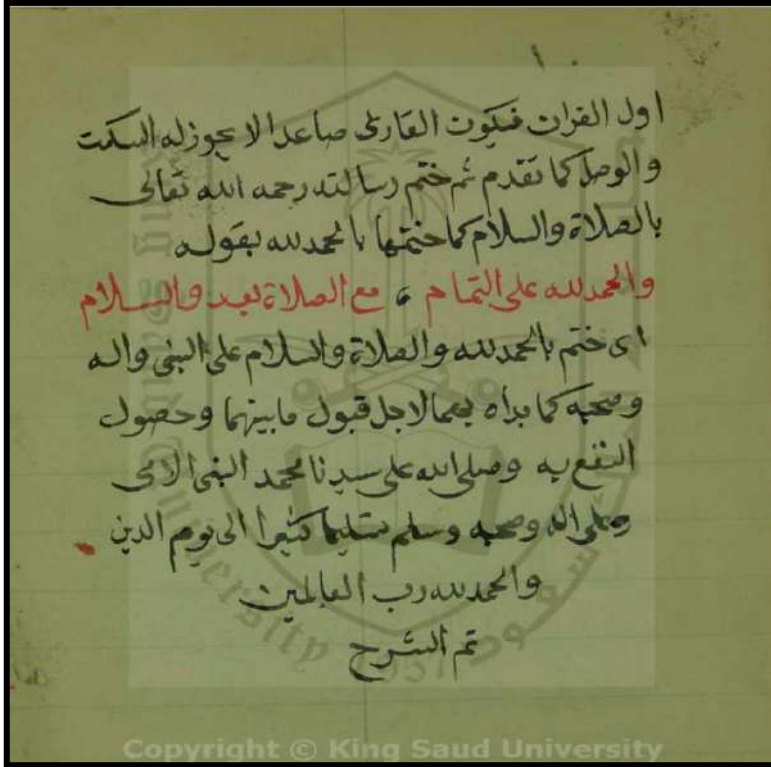 اول القران فيكون القارئ صاعدا لا يجوز له السكت
والوصل كما تقدم ثم ختم رسالته رحمه الله تعالى
بالصلاة والسلام كما ختمها بالحمد لله بقوله
والحمد لله على التمام ، مع الصلاة بعد والسلام
اى ختم بالحمد لله والصلاة والسلام على النبى واله
وصحبه كما بداه بهما لاجل قبول ما بينهما وحصول
النفع به وصلى الله على سيدنا محمد النبى الامى
وعلى اله وصحبه وسلم تسليما كثيرا الى يوم الدين
والحمد لله رب العالمين
تم الشرح
Copyright © King Saud University